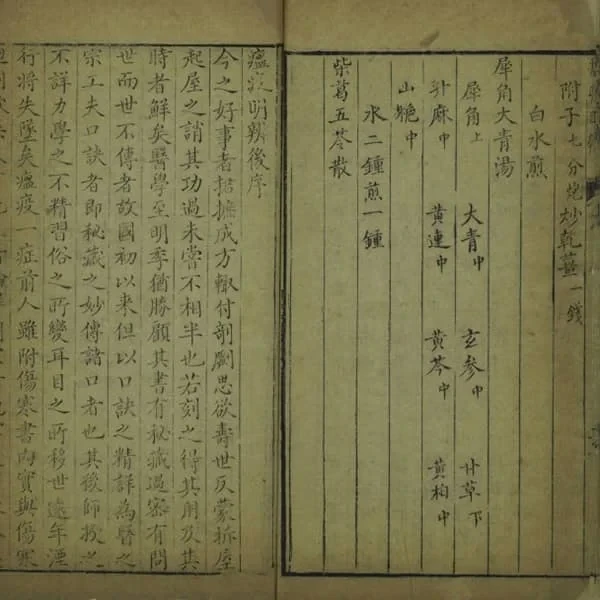 附子七分炮 炒乾薑一錢
白水煎
犀角大青湯
犀角上 大青中 玄參中 甘草下
升麻中 黃連中 黃芩中 黃柏中
山梔中
水二鍾煎一鍾
柴葛五苓散
瘟疫明辨後序
今之好事者招摭成方輙付剞劂思欲壽世反蒙拆屋
起屋之誚其功過未嘗不相半也若刻之得其用及其
時者鮮矣醫學至明季猶勝顧其書有秘藏過密有問
世而世不傳者故國初以來但以口訣之精詳為醫之
宗工夫口訣者即秘藏之妙傳諸口者也其後師授之
不詳力學之不精習俗之所變耳目之所移世遠年湮
行將失墜矣瘟疫一症前人雖附傷寒書內實與傷寒